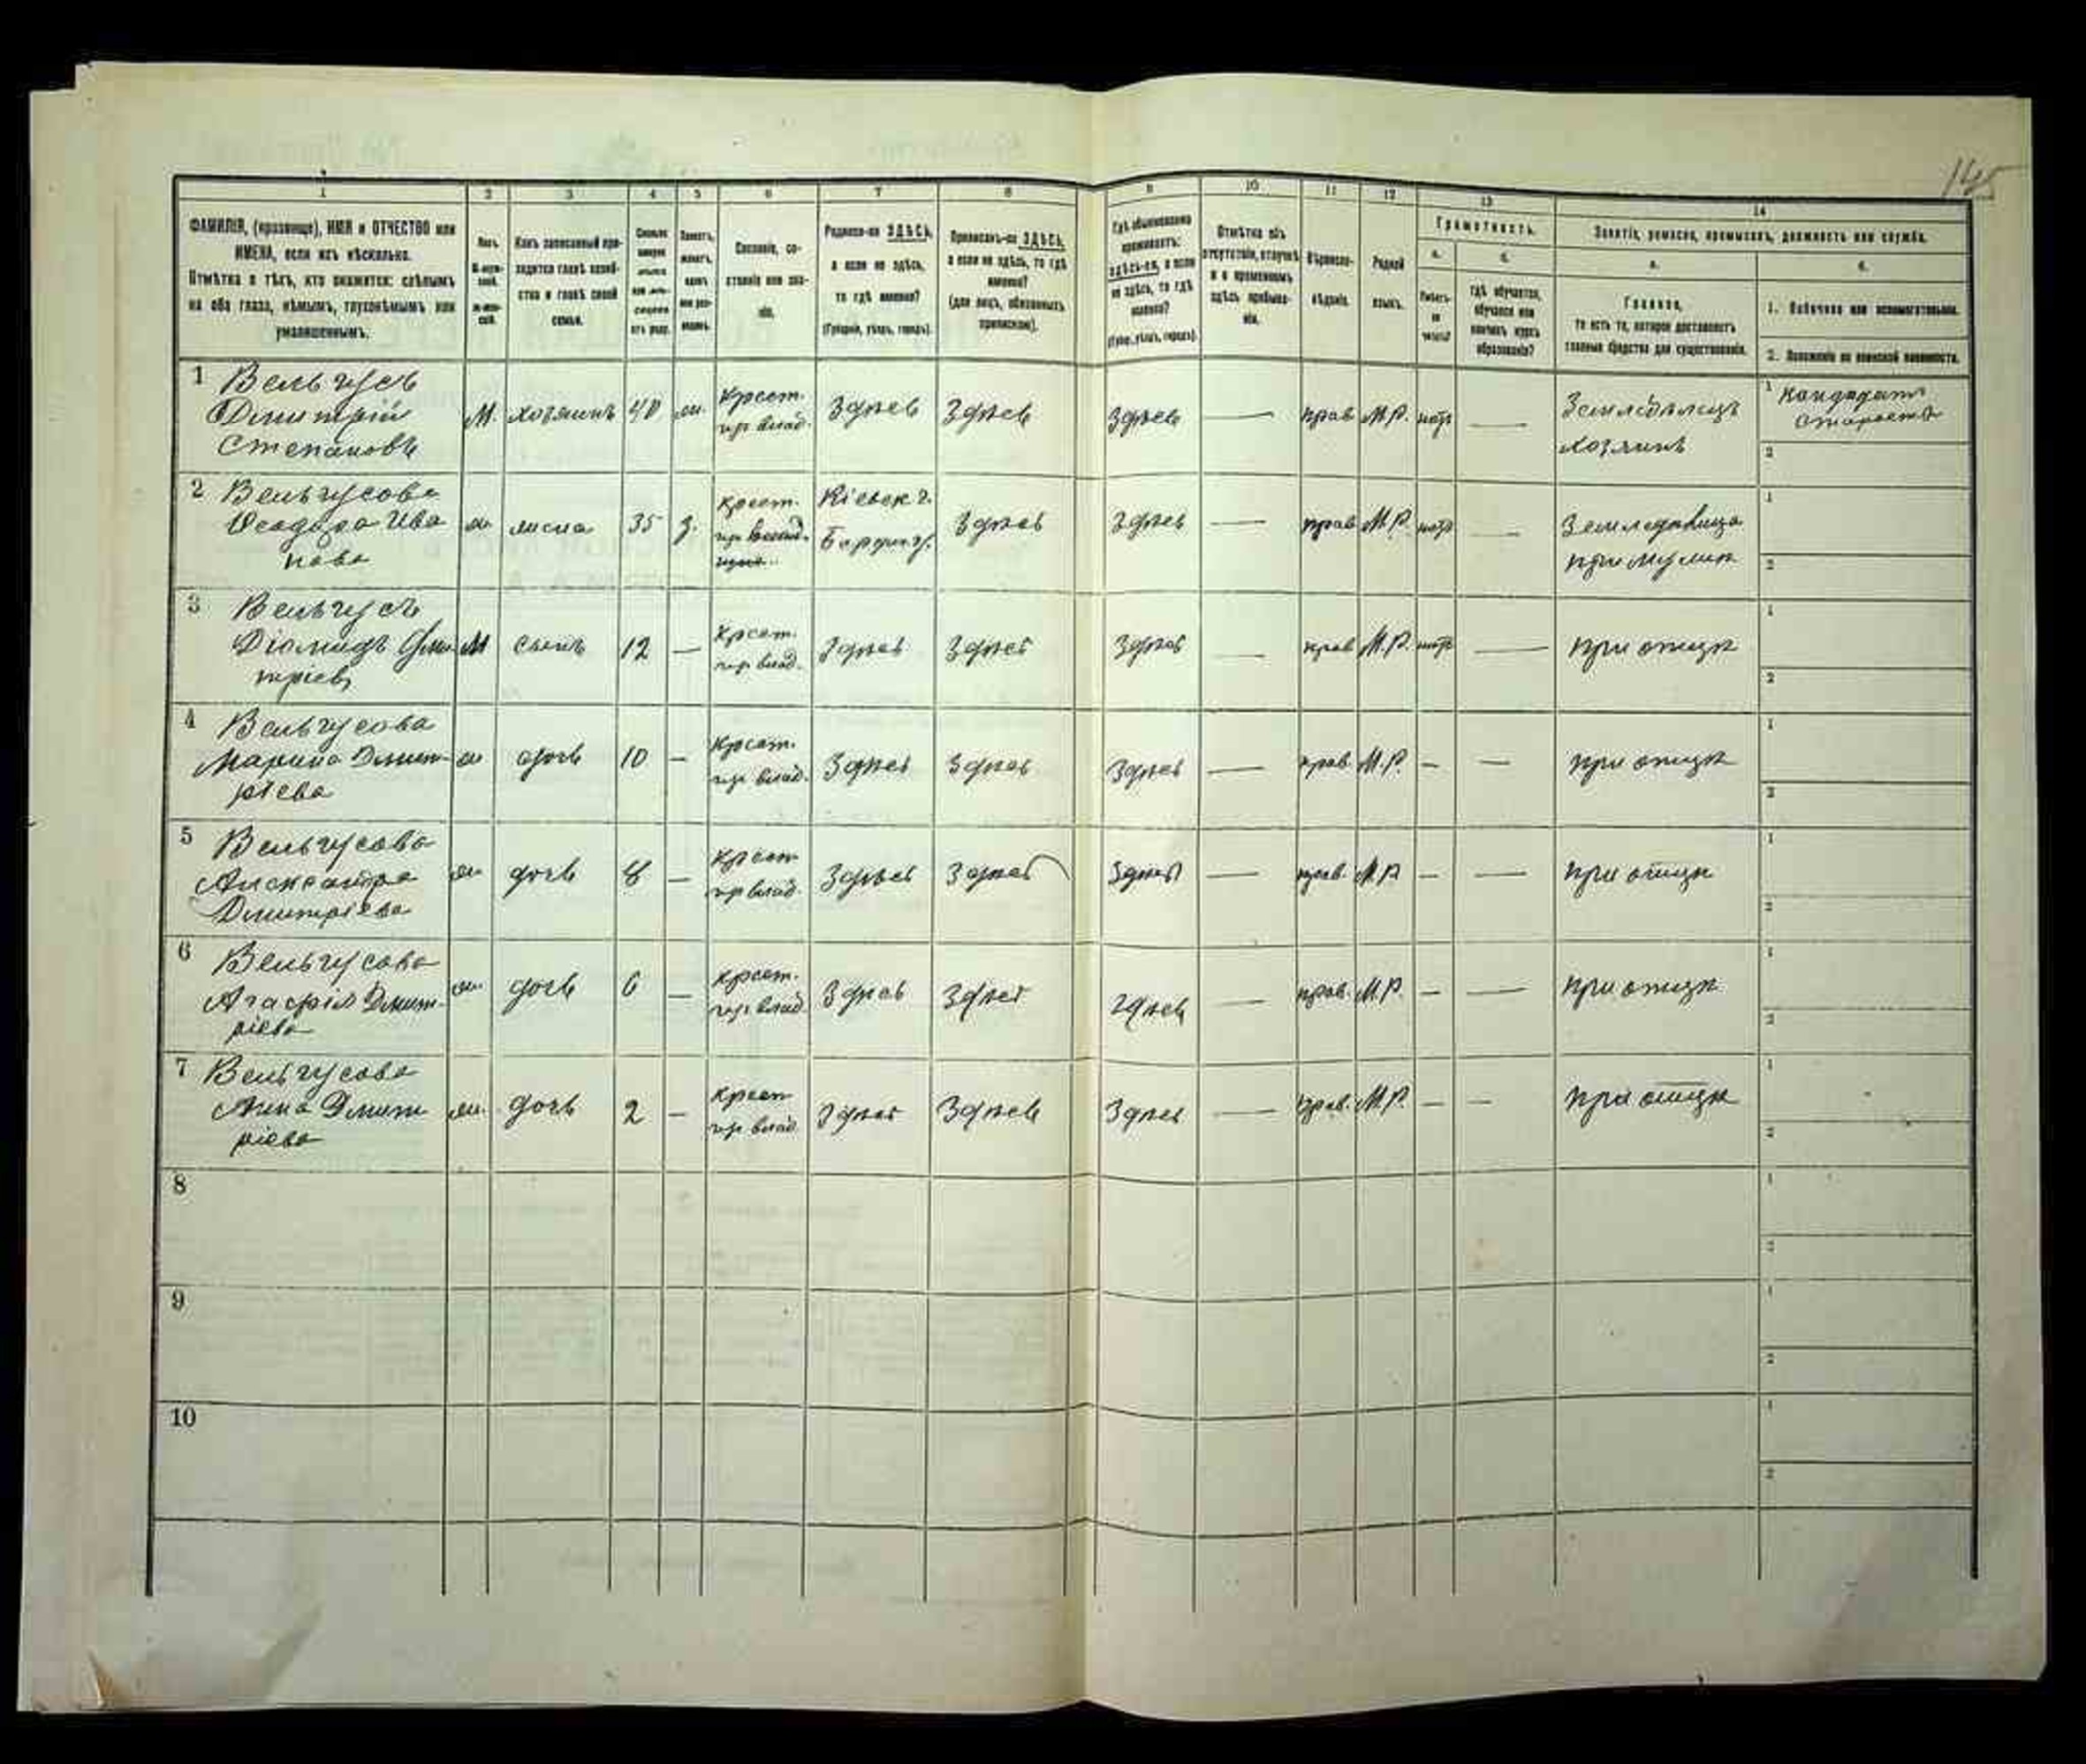 145
1 2 3 4 5 6 7 8 9 10 11 12 13 14
ФАМИЛІЯ, (прозвище), ИМЯ и ОТЧЕСТВО или
ИМЕНА, если ихъ нѣсколько.
Отмѣтка о тѣхъ, кто окажется: слѣпымъ
на оба глаза, нѣмымъ, глухонѣмымъ или
умалишеннымъ.
Полъ.
М-муж-
ской.
Ж-жен-
скій.
Какъ записанный при-
ходится главѣ хозяй-
ства и главѣ своей
семьи.
Сколько
минуло
лѣтъ
или мѣ-
сяцевъ
отъ роду.
Холостъ,
женатъ,
вдовъ
или раз-
веденъ.
Сословіе, со-
стояніе или зва-
ніе.
Родился-ли ЗДѢСЬ,
а если не здѣсь,
то гдѣ именно?
(Губернія, уѣздъ, городъ).
Приписанъ-ли ЗДѢСЬ,
а если не здѣсь, то гдѣ
именно?
(для лицъ, обязанныхъ
припискою).
Гдѣ обыкновенно
проживаетъ:
здѣсь-ли, а если
не здѣсь, то гдѣ
именно?
(Губер., уѣздъ, городъ).
Отмѣтка объ
отсутствіи, отлучкѣ
и о временномъ
здѣсь пребыва-
ніи.
Вѣроиспо-
вѣданіе.
Родной
языкъ.
Грамотность.
а.
Умѣетъ-
ли
читать?
б.
гдѣ обучается,
обучался или
кончилъ курсъ
образованія?
Занятіе, ремесло, промыселъ, должность или служба.
а.
Главное,
то есть то, которое доставляетъ
главныя средства для существованія.
б.
1. Побочное или вспомогательное.
2. Положеніе по воинской повинности.
1 Вельгусъ
Дмитрій
Степановъ
М. хозяинъ 40 ж. Крест.
пр. влад. Здѣсь Здѣсь Здѣсь — прав. М.Р. нѣтъ — Земледѣлецъ
хозяинъ
1 Кандидатъ
старосты
2
2 Вельгусова
Ѳеодора Ива
нова
ж жена 35 з. Крест.
пр. влад. Кіевск г.
Здѣсь Здѣсь — прав М.Р. нѣтъ —
при мужѣ
1
2
3 Вельгусъ
Діомидъ Дми
тріевъ
М сынъ 12 — Крест.
пр. влад. Здѣсь Здѣсь Здѣсь — прав М.Р. нѣтъ — при отцѣ
1
2
4 Вельгусова
Марина Дмит-
ріева
ж дочь 10 — Крест.
пр. влад. Здѣсь Здѣсь Здѣсь — прав. М.Р. — — при отцѣ
1
2
5 Вельгусова
Александра
Дмитріева
ж дочь 8 — Крест
пр. влад. Здѣсь Здѣсь Здѣсь — прав. М.Р — — при отцѣ
1
2
6 Вельгусова
Агафія Дмит-
ріева
ж дочь 6 — Крест.
пр. влад Здѣсь Здѣсь Здѣсь — прав. М.Р. — — при отцѣ
1
2
7 Вельгусова
Анна Дмит
ріева
ж. дочь 2 — Крест
пр. влад. Здѣсь Здѣсь Здѣсь — прав. М.Р. — — при отцѣ
1
2
8
1
2
9
1
2
10
1
2